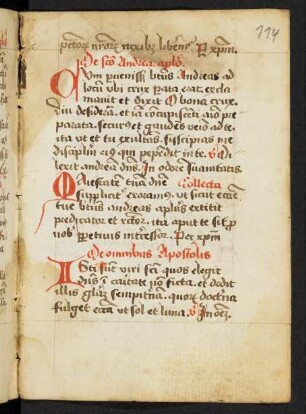 114
De sco Andrea. aplo.
Cum puenisset btus Andreas ad
locum ubi crux pata erat. excla
mauit et dixit O bona crux
diu desiderata. et iam concupiscenti aio pre
parata. securus et gaudes venio ad te
ita ut et tu exultas. suscipias me
discipulum eius qui pependit in te. V Di
lexit andream dns. In odore suauitatis
Maiestatem tuam dne Collecta
suppliciter exoramus. ut sicut eccle
tue btus andreas aplus extitit
predicator et rector. ita apud te sit p
nob perpetuus intercessor. Per xpm
De omnibus Apostolis
Isti sunt viri sci quos elegit
dns in caritate non ficta. et dedit
illis gliam sempiternam. quorum doctrina
fulget eccia ut sol et luna. V In oem